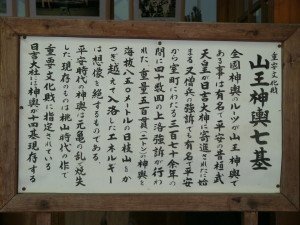 重要文化財
山王神輿七基
全国神輿のルーツが山王神輿で
ある事は有名で平安の昔桓武
天皇が日吉大神に寄進されたに始
まる 又僧兵の強訴でも有名で平安
から室町にわたる三百七十余年の
間に四十数回の上洛強訴が行わ
れた 重量五百貫(二トン)の神輿を
海抜八五〇メートルの比叡山をか
つぎ越えて入洛したエネルギー
は想像を絶するものである
平安時代の神輿は元亀の乱で焼失
した 現存のものは桃山時代の作で
重要文化財に指定されている
日吉大社に神輿が十四基現存する